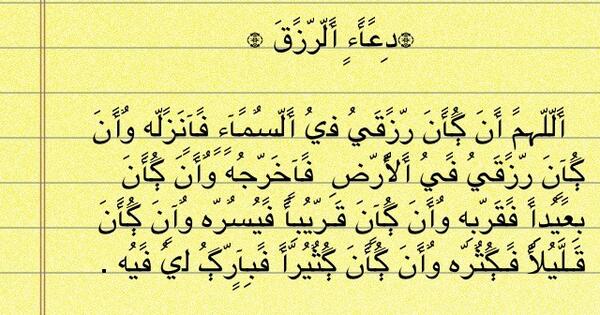 ۞دِعًأًءٍ أًلّرّزًقَ ۞
أًلّلّهمً أًنَ كُأًنَ رّزًقَيُ فيُ أًلّسٌمًأًء فًأًنَزًلّه وٌأًنَ
كُأًنَ رّزًقَيُ فيُ أًلأًرّض فًأًخَرّجُه وٌأًنَ كُأًنَ
بعًيُدِأً فًقَرّبه وٌأًنَ كُأًنَ قَرّيُبأً فًيُسٌرّه وٌأًنَ كُأًنَ
قَلّيُلأً فًكُثُرّه وٌأًنَ كُأًنَ كُثُيُرّأً فًبأًرّكُ ليُ فًيُه .